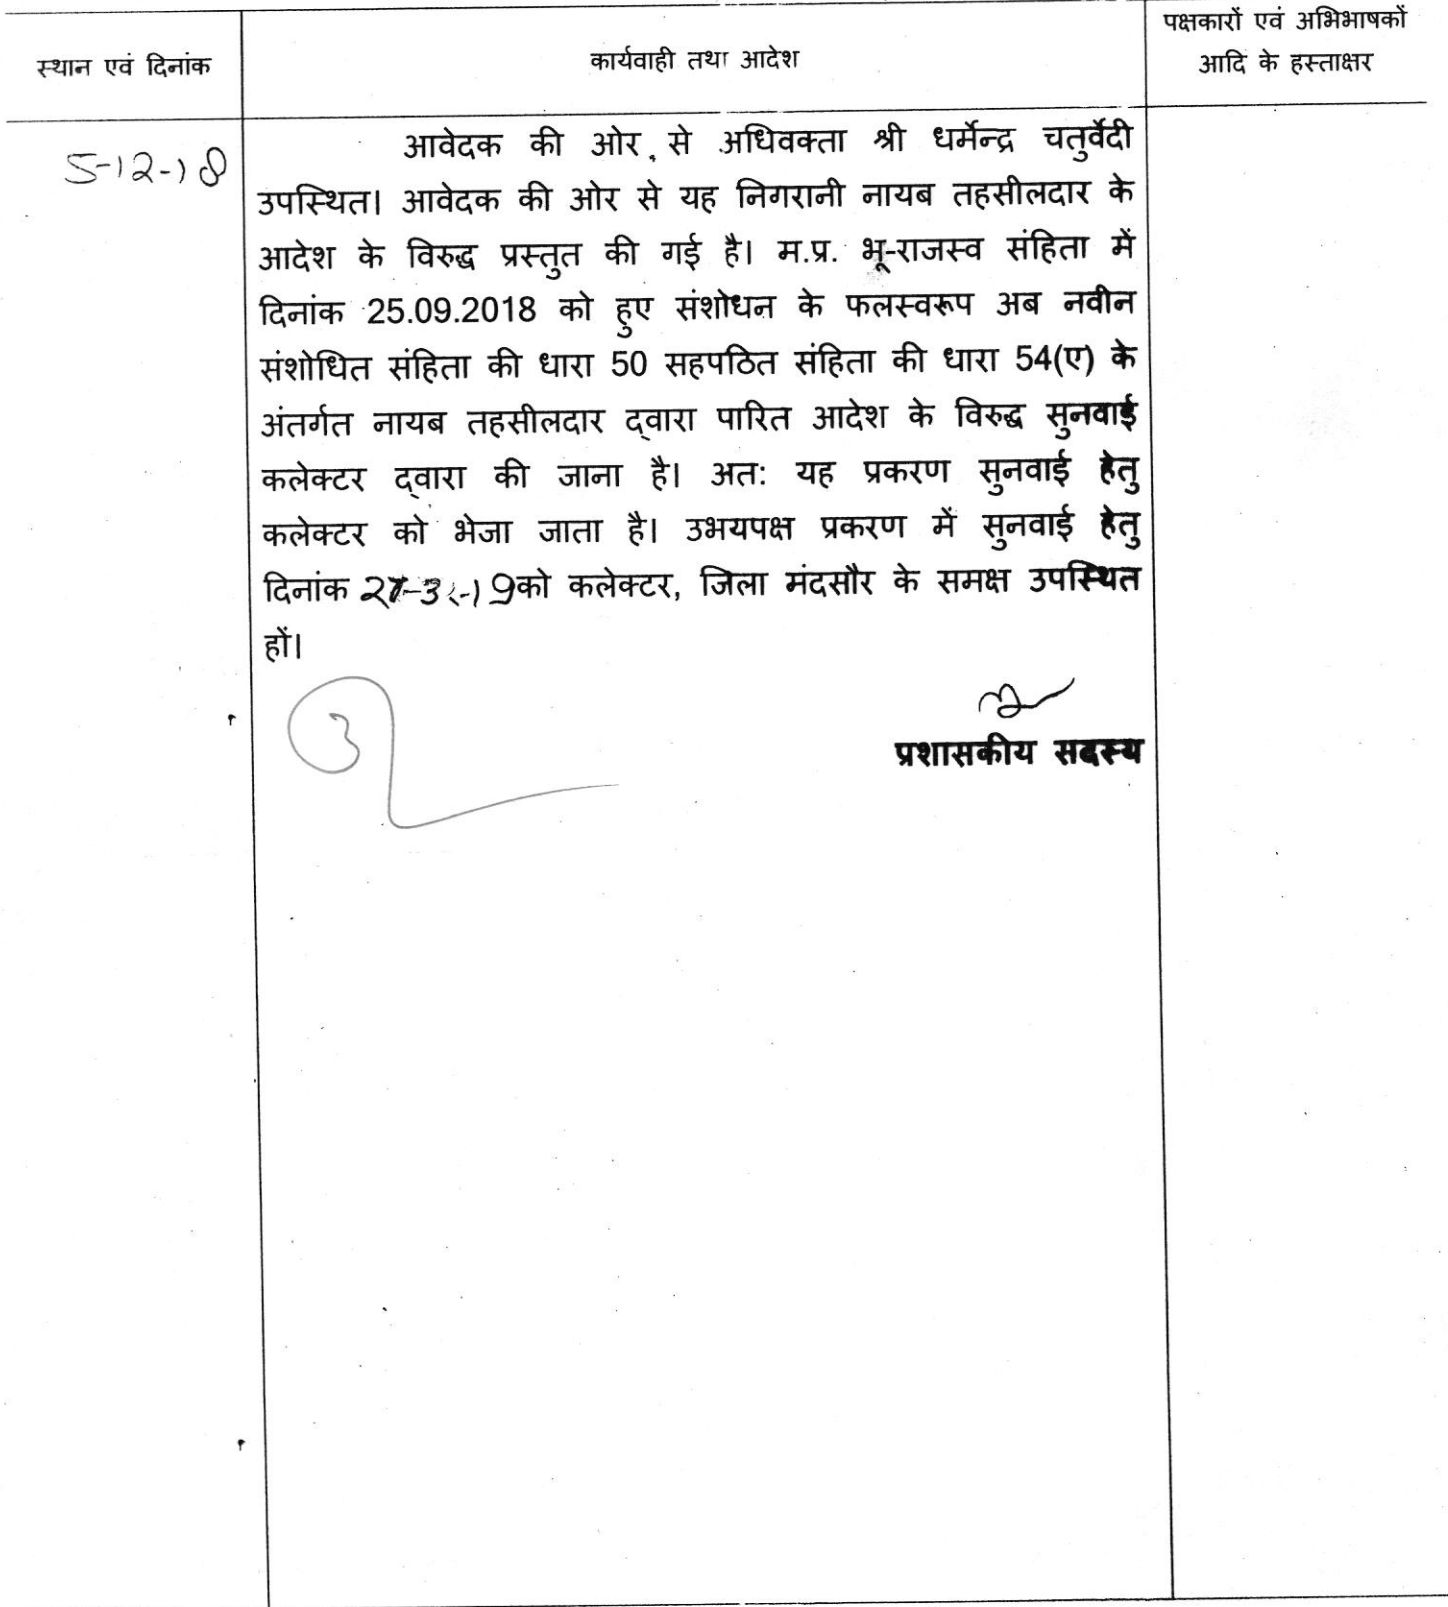 स्थान एवं दिनांक
कार्यवाही तथा आदेश
पक्षकारों एवं अभिभाषकों
आदि के हस्ताक्षर
5-12-18
आवेदक की ओर से अधिवक्ता श्री धर्मेन्द्र चतुर्वेदी
उपस्थित। आवेदक की ओर से यह निगरानी नायब तहसीलदार के
आदेश के विरुद्ध प्रस्तुत की गई है। म.प्र. भू-राजस्व संहिता में
दिनांक 25.09.2018 को हुए संशोधन के फलस्वरूप अब नवीन
संशोधित संहिता की धारा 50 सहपठित संहिता की धारा 54(ए) के
अंतर्गत नायब तहसीलदार द्वारा पारित आदेश के विरुद्ध सुनवाई
कलेक्टर द्वारा की जाना है। अत: यह प्रकरण सुनवाई हेतु
कलेक्टर को भेजा जाता है। उभयपक्ष प्रकरण में सुनवाई हेतु
दिनांक 27-3-19 को कलेक्टर, जिला मंदसौर के समक्ष उपस्थित
हों।
प्रशासकीय सदस्य